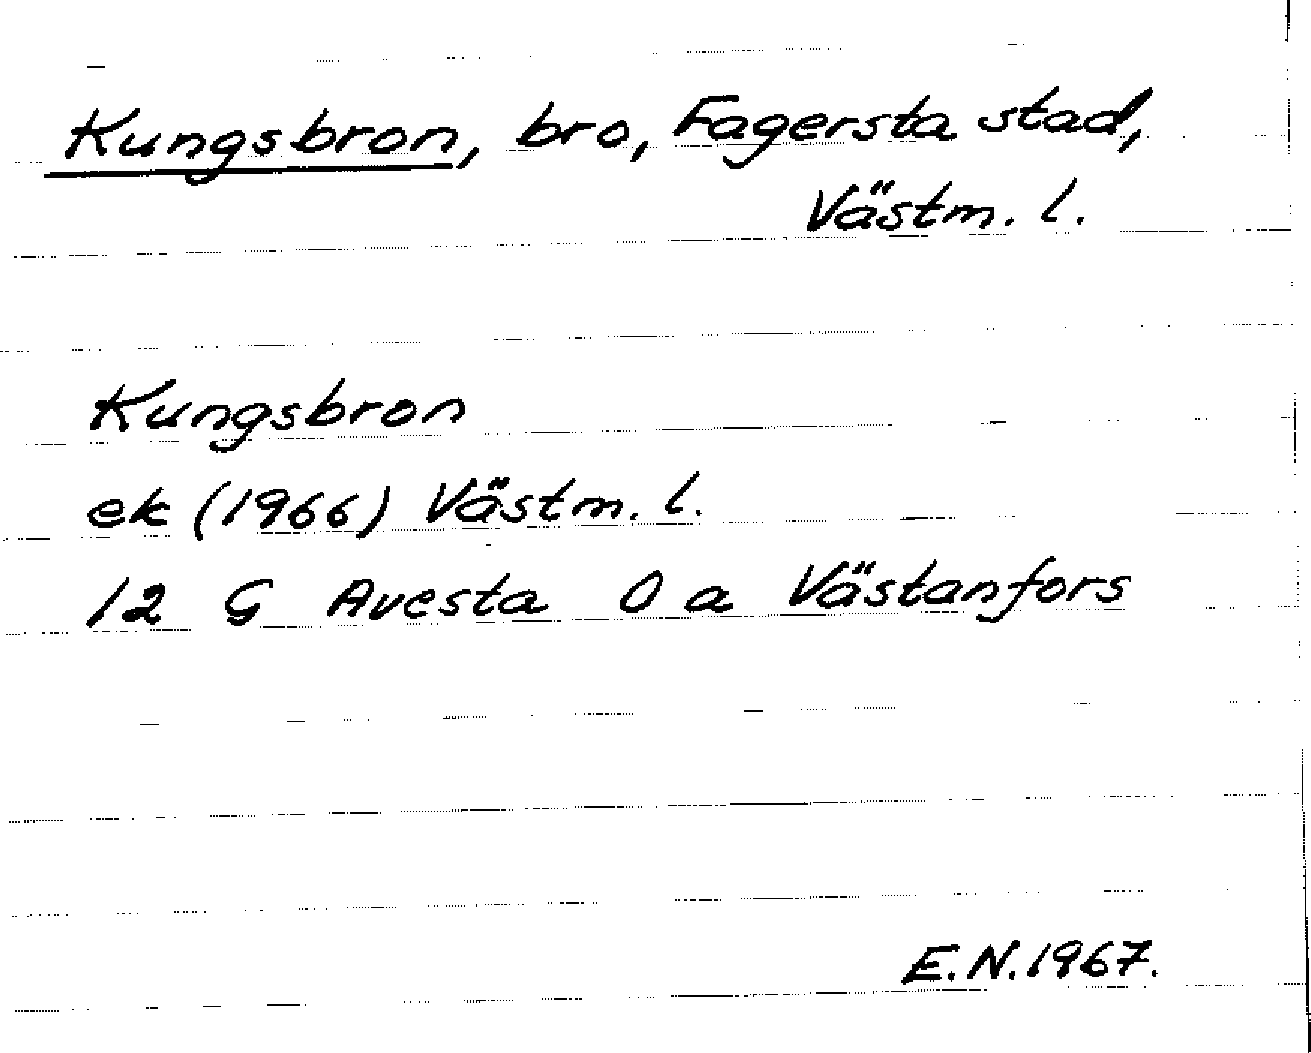 Kungsbron, bro, Fagersta stad,
Västm. l.
Kungsbron
ek (1966) Västm. l.
12 G Avesta 0 a Västanfors
E.N. 1967.